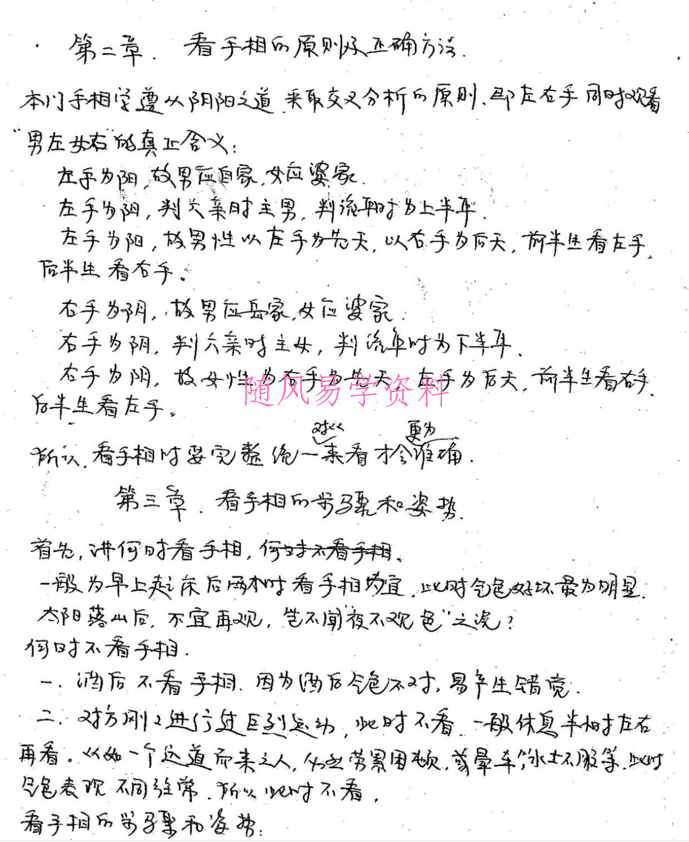 第二章. 看手相的原则及正确方法.
本门手相学遵从阴阳之道,采取交叉分析的原则.即左右手同时观看
“男左女右”的真正含义:
左手为阳,故男应自家,女应婆家.
左手为阳,判六亲时主男,判流年时为上半年.
左手为阳,故男性以左手为先天,以右手为后天,前半生看左手,
后半生看右手。
右手为阴,故男应岳家,女应婆家.
右手为阴,判六亲时主女,判流年时为下半年.
右手为阴,故女性为右手为先天,左手为后天,前半生看右手,
随风易学资料
后半生看左手。
对 更为
所以,看手相时要完整统一来看才会准确.
第三章. 看手相的步骤和姿势.
首先,讲何时看手相,何时不看手相.
一般为早上起床后两小时看手相为宜,此时气色好坏最为明显.
太阳落山后,不宜再观,岂不闻“夜不观色”之说?
何时不看手相.
一. 酒后不看手相.因为酒后气色不对,易产生错觉.
二. 对方刚刚进行过巨烈运动,此时不看.一般休息半小时左右
再看。从如一个远道而来之人,劳累困顿,或晕车、水土不服等,此时
气色表现不同弦常.所以此时不看,
看手相的步骤和姿势: